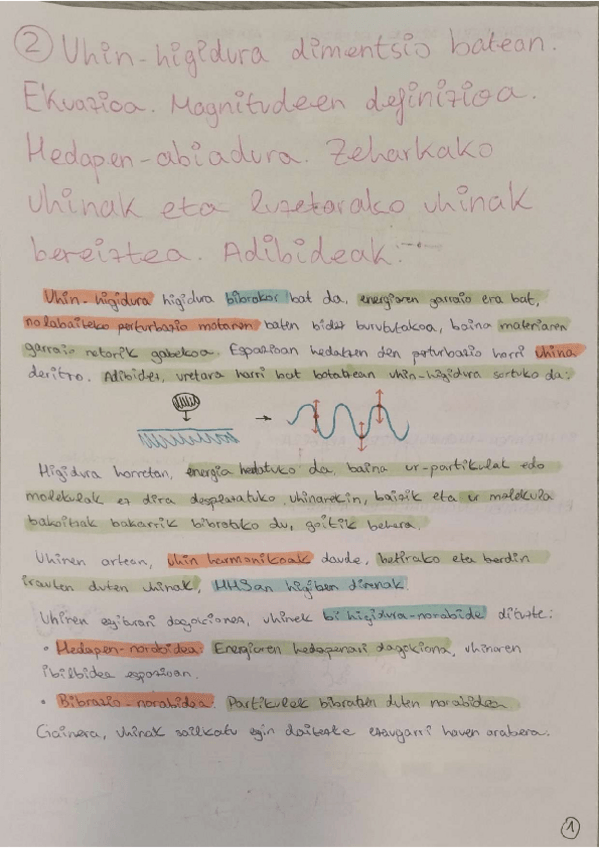 ② Uhin-higidura dimentsio batean.
Ekuazioa. Magnitudeen definizioa.
Hedapen-abiadura. Zeharkako
uhinak eta luzetarako uhinak
bereiztea. Adibideak.
Uhin-higidura higidura bibrakor bat da, energiaren garraio era bat,
nolabaiteko perturbazio motaren baten bidez burututakoa, baina materiaren
garraio netorik gabekoa. Espazioan hedatzen den perturbazio horri uhina
deritzo. Adibidez, uretara harri bat botatzean uhin-higidura sortuko da:
→
Higidura horretan, energia hedatuko da, baina ur-partikulak edo
molekulak ez dira desplazatuko uhinarekin, baizik eta ur molekula
bakoitzak bakarrik bibratuko du, goitik behera.
Uhinen artean, uhin harmonikoak daude, betirako eta berdin
irauten duten uhinak, HHSan higitzen direnak.
Uhinen egiturari dagokionez, uhinek bi higidura-norabide dituzte:
• Hedapen-norabidea: Energiaren hedapenari dagokiona, uhinaren
ibilbidea espazioan.
• Bibrazio-norabidea: Partikulek bibratzen duten norabidea
Gainera, uhinak sailkatu egin daitezke ezaugarri hauen arabera:
1